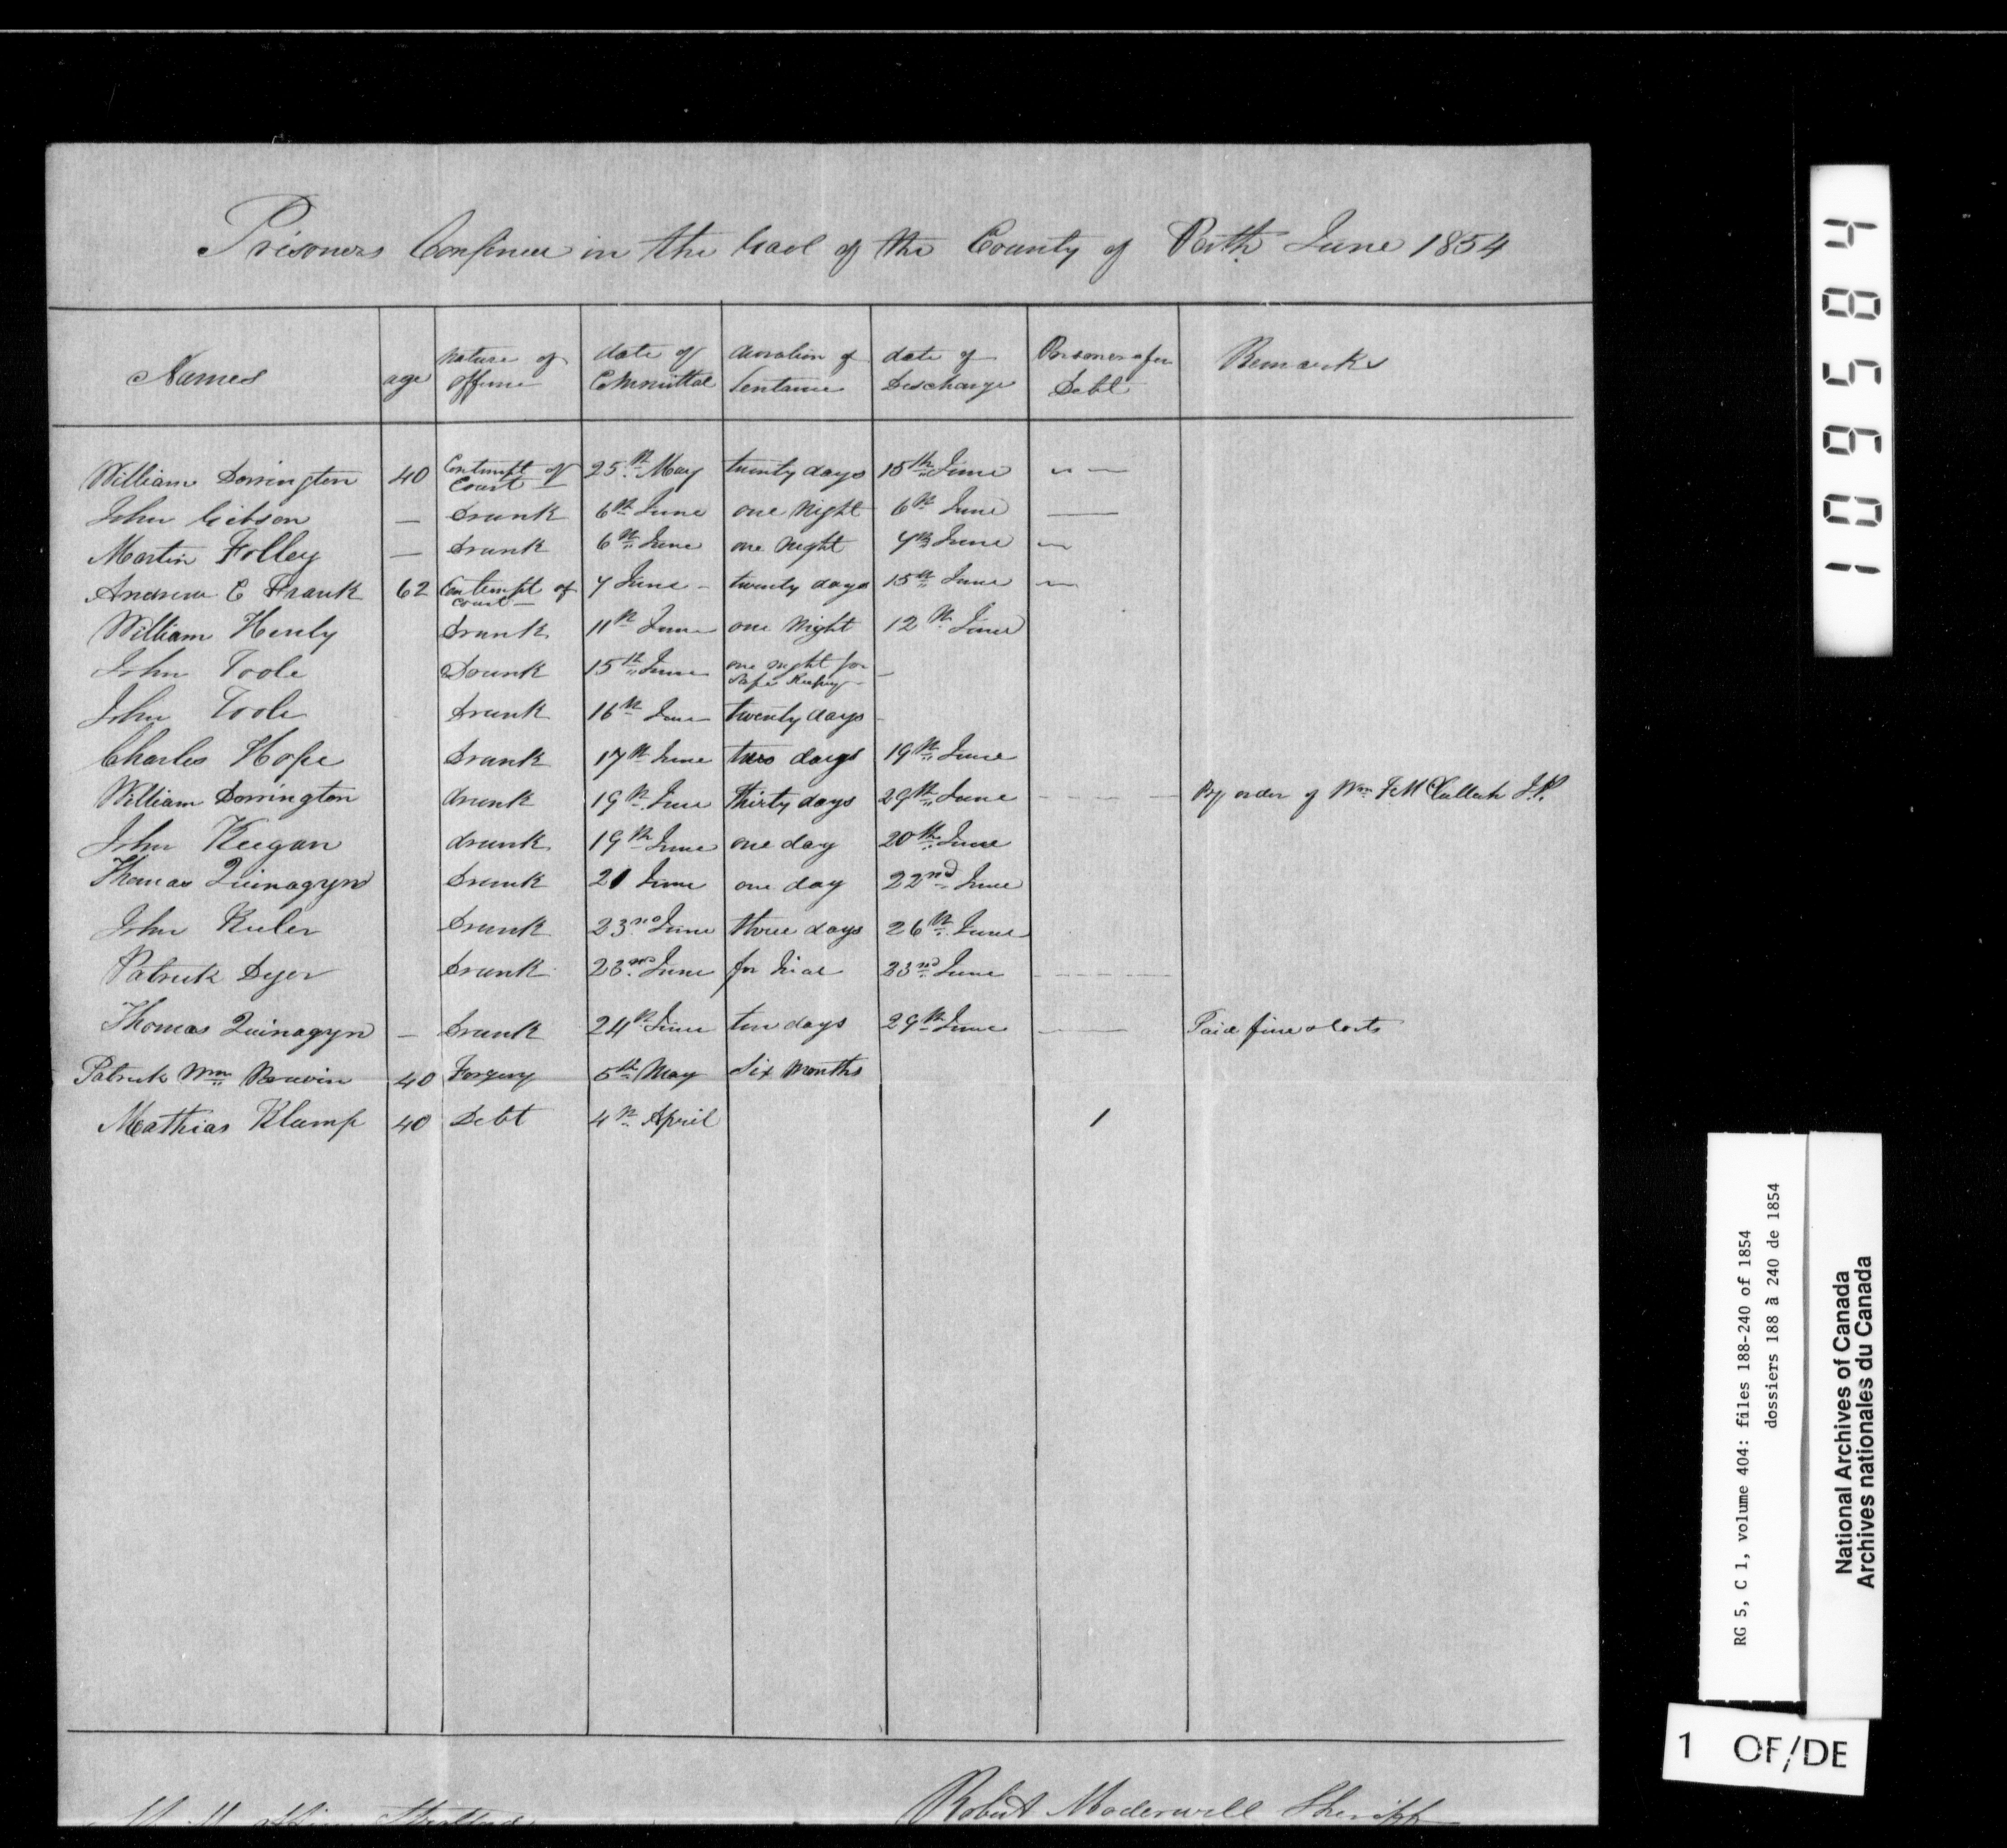 Prisoners Confined in the Gaol of the County of Perth June 1854
Names age nature of offence date of Committal duration of Sentance date of Discharge Prisoners for Debt Remarks
William Dorrington 40 Contempt of Court 25th May twenty days 15th June
John Gibson — Drunk 6th June one Night 6th June —
Martin Folley — Drunk 6th June one Night 7th June —
Andrew C Frank 62 Contempt of Court — 7 June - twenty days 15th June —
William Henly Drunk 11th June one Night 12th June
John Toole Drunk 15th June one night for Safe Keeping -
John Toole Drunk 16th June twenty days -
Charles Hope Drunk 17th June two days 19th June
William Dorrington drunk 19th June Thirty days 29th June - - - - By order of Wm F McCulloch J.P.
John Keegan drunk 19th June one day 20th June
Thomas Quinagyn Drunk 21 June one day 22nd June
John Kuler Drunk 23rd June three days 26th June
Patrick Dyer Drunk 23rd June for trial 23rd June - - - -
Thomas Quinagyn — Drunk 24th June ten days 29th June — Paid fine & Costs
Patrick Wm 40 Forgery 5th May Six Months
Mathias Klump 40 Debt 4th April 1
Stratford
Robert Moderwell Sheriff
109584
RG 5, C 1, volume 404: files 188-240 of 1854
dossiers 188 à 240 de 1854
National Archives of Canada
Archives nationales du Canada
1 OF/DE